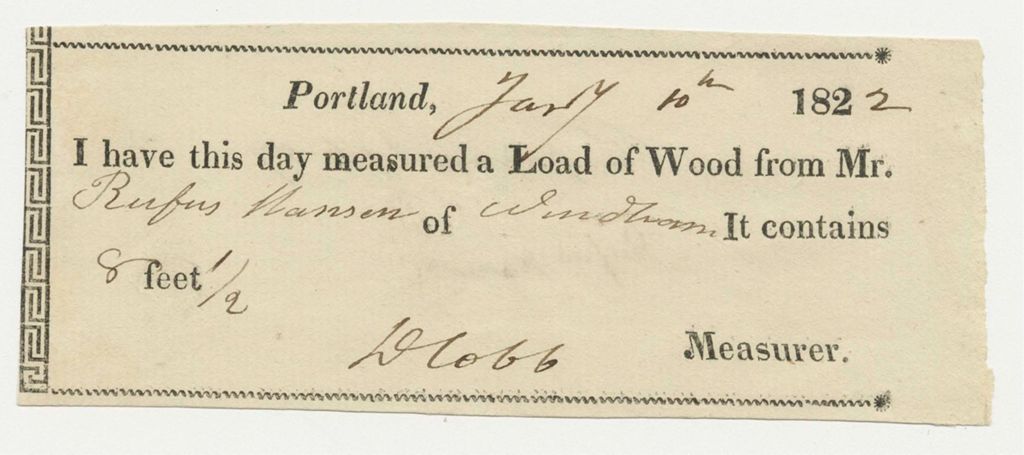 Portland, Jany 10th 1822
I have this day measured a Load of Wood from Mr.
Rufus Hansen of Windham It contains
8 feet 1/2
D Cobb Measurer.